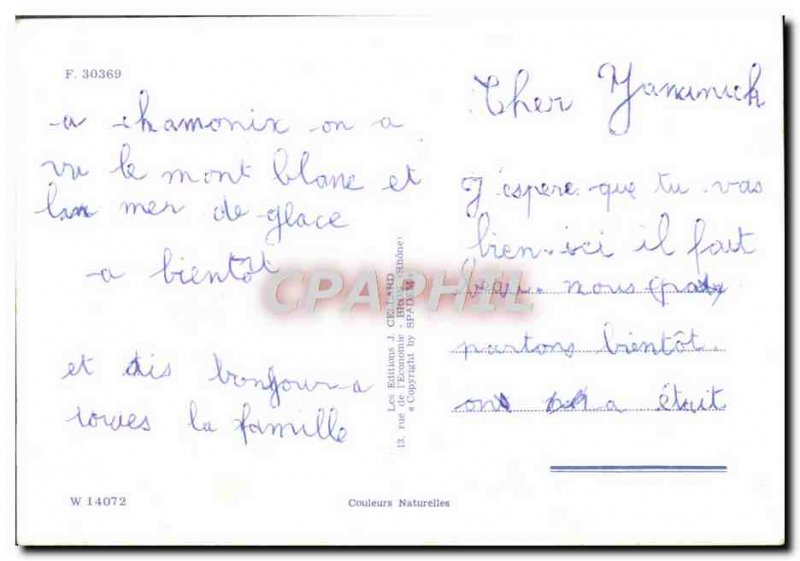 F. 30369
Cher Yannick
J'espere que tu vas
bien. ici il fait
beau. nous
partons bientôt.
on a était
a chamonix on a
vu le mont blanc et
la mer de glace
a bientôt
et dis bonjour a
toutes la famille
Les Editions J. CELLARD
13, rue de l'Economie - BRON (Rhône)
Copyright by SPADEM
CPAPHIL
W 14072
Couleurs Naturelles